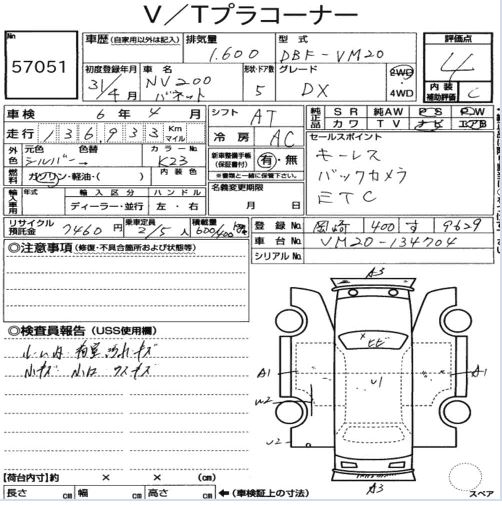 V／Tプラコーナー
No 57051
車歴 (自家用以外は記入)
排気量 1.600
型式 DBF-VM20
評価点 4
内装補助評価 C
初度登録年月 31/4月
車名 NV200 バネット
形状・ドア数 5
グレード DX
2WD
4WD
車検 6年 4月
シフト AT
純正品 SR 純AW PS PW
カワ TV ナビ エアB
走行 136,933 Km マイル
冷房 AC
セールスポイント
キーレス
バックカメラ
ETC
外色 元色 シルバー 色替 カラーNo. K23 内装色
燃料 ガソリン・軽油・( )
新車整備手帳 (保証書付) 有・無
※書類と一緒に保管下さい
輸入車用 年式 輸入区分 ディーラー・並行 ハンドル 左・右
名義変更期限 月 日
リサイクル預託金 7460円
乗車定員 2/5人
積載量 600/400 kg
登録No. 岡崎 400 す 9629
車台No. VM20-134704
シリアルNo.
◎注意事項 (修復・不具合箇所および状態等)
◎検査員報告 (USS使用欄)
A3
A1
U1
A1
W2
W2
A3
スペア
【荷台内寸】約 × × (cm)
長さ cm 幅 cm 高さ cm ←(車検証上の寸法)